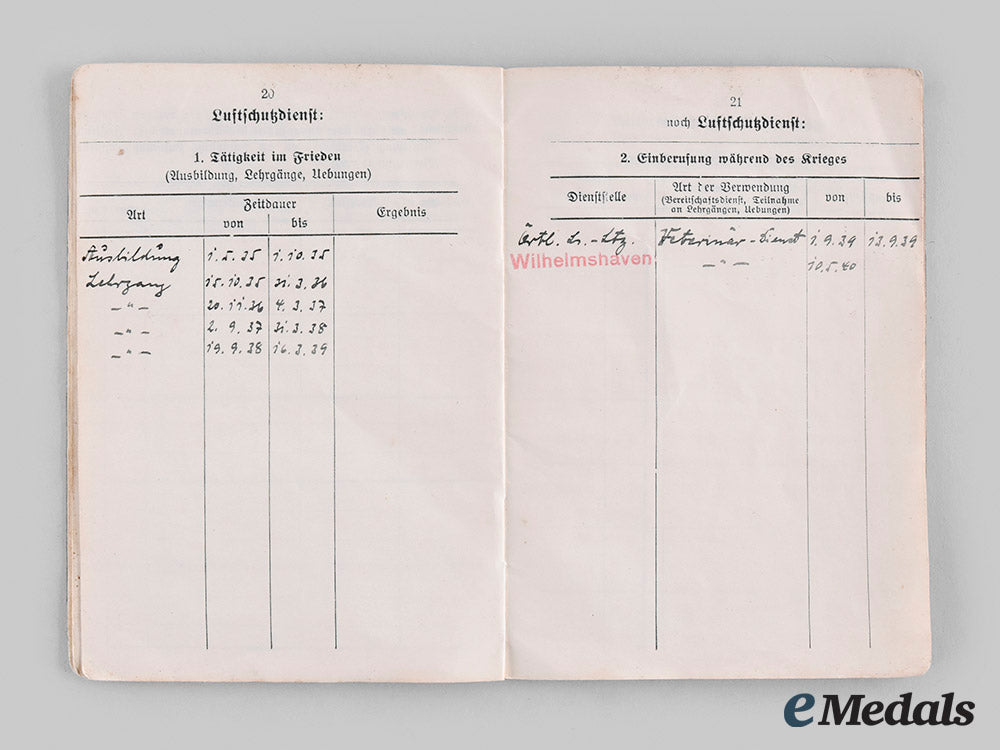 20
Luftschutzdienst:
1. Tätigkeit im Frieden
(Ausbildung, Lehrgänge, Uebungen)
Art
Zeitdauer
von bis
Ergebnis
Ausbildung 1.5.35 1.10.35
Lehrgang 15.10.35 31.3.36
— " — 20.11.36 4.3.37
— " — 2.9.37 31.3.38
— " — 19.9.38 16.3.39
21
noch Luftschutzdienst:
2. Einberufung während des Krieges
Dienststelle
Art der Verwendung
(Bereitschaftsdienst, Teilnahme
an Lehrgängen, Uebungen)
von bis
Örtl. Ls.-Ltg. Veterinär-Dienst 1.9.39 13.9.39
Wilhelmshaven — " — 10.5.40
eMedals